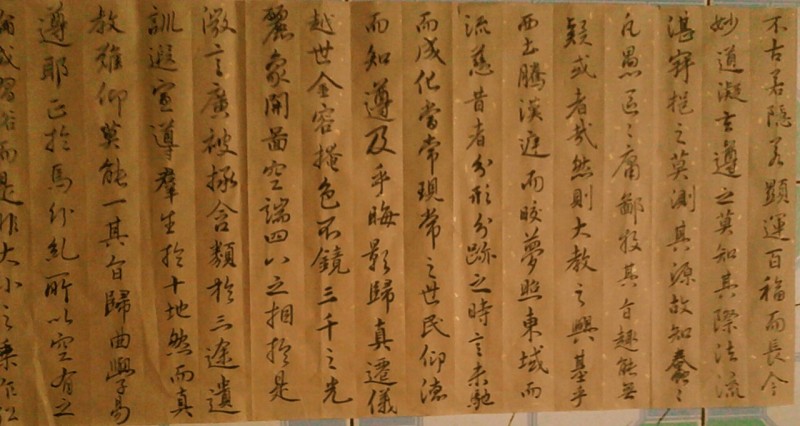 不古若隱若顯運百福而長今
妙道凝玄遵之莫知其際法流
湛寂挹之莫測其源故知蠢々
凡愚區々庸鄙投其旨趣能無
疑或者哉然則大教之興基乎
西土騰漢庭而皎夢照東域而
流慈昔者分形分跡之時言未馳
而成化當常現常之世民仰德
而知遵及乎晦影歸真遷儀
越世金容掩色不鏡三千之光
麗象開圖空端四八之相於是
微言廣被拯含類於三途遺
訓遐宣導群生於十地然而真
教難仰莫能一其旨歸曲學易
遵耶正於焉紛糺所以空有之
論或習俗而是非大小之乘乍沿